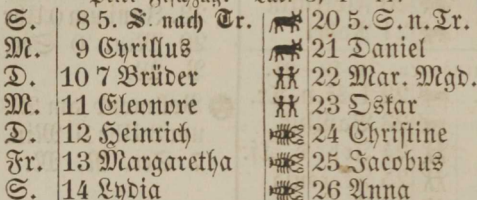 S. 8 5. S. nach Tr. 20 5. S. n. Tr.
M. 9 Cyrillus 21 Daniel
D. 10 7 Brüder 22 Mar. Mgd.
M. 11 Eleonore 23 Oskar
D. 12 Heinrich 24 Christine
Fr. 13 Margaretha 25 Jacobus
S. 14 Lydia 26 Anna